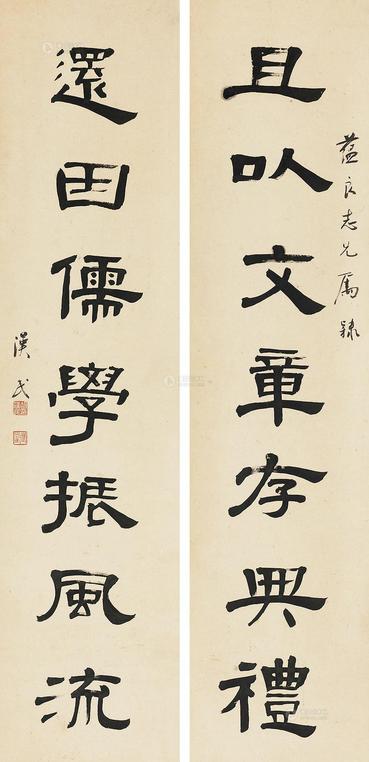 蕴良志兄属隸
且以文章存典禮
還因儒學振風流
漢民